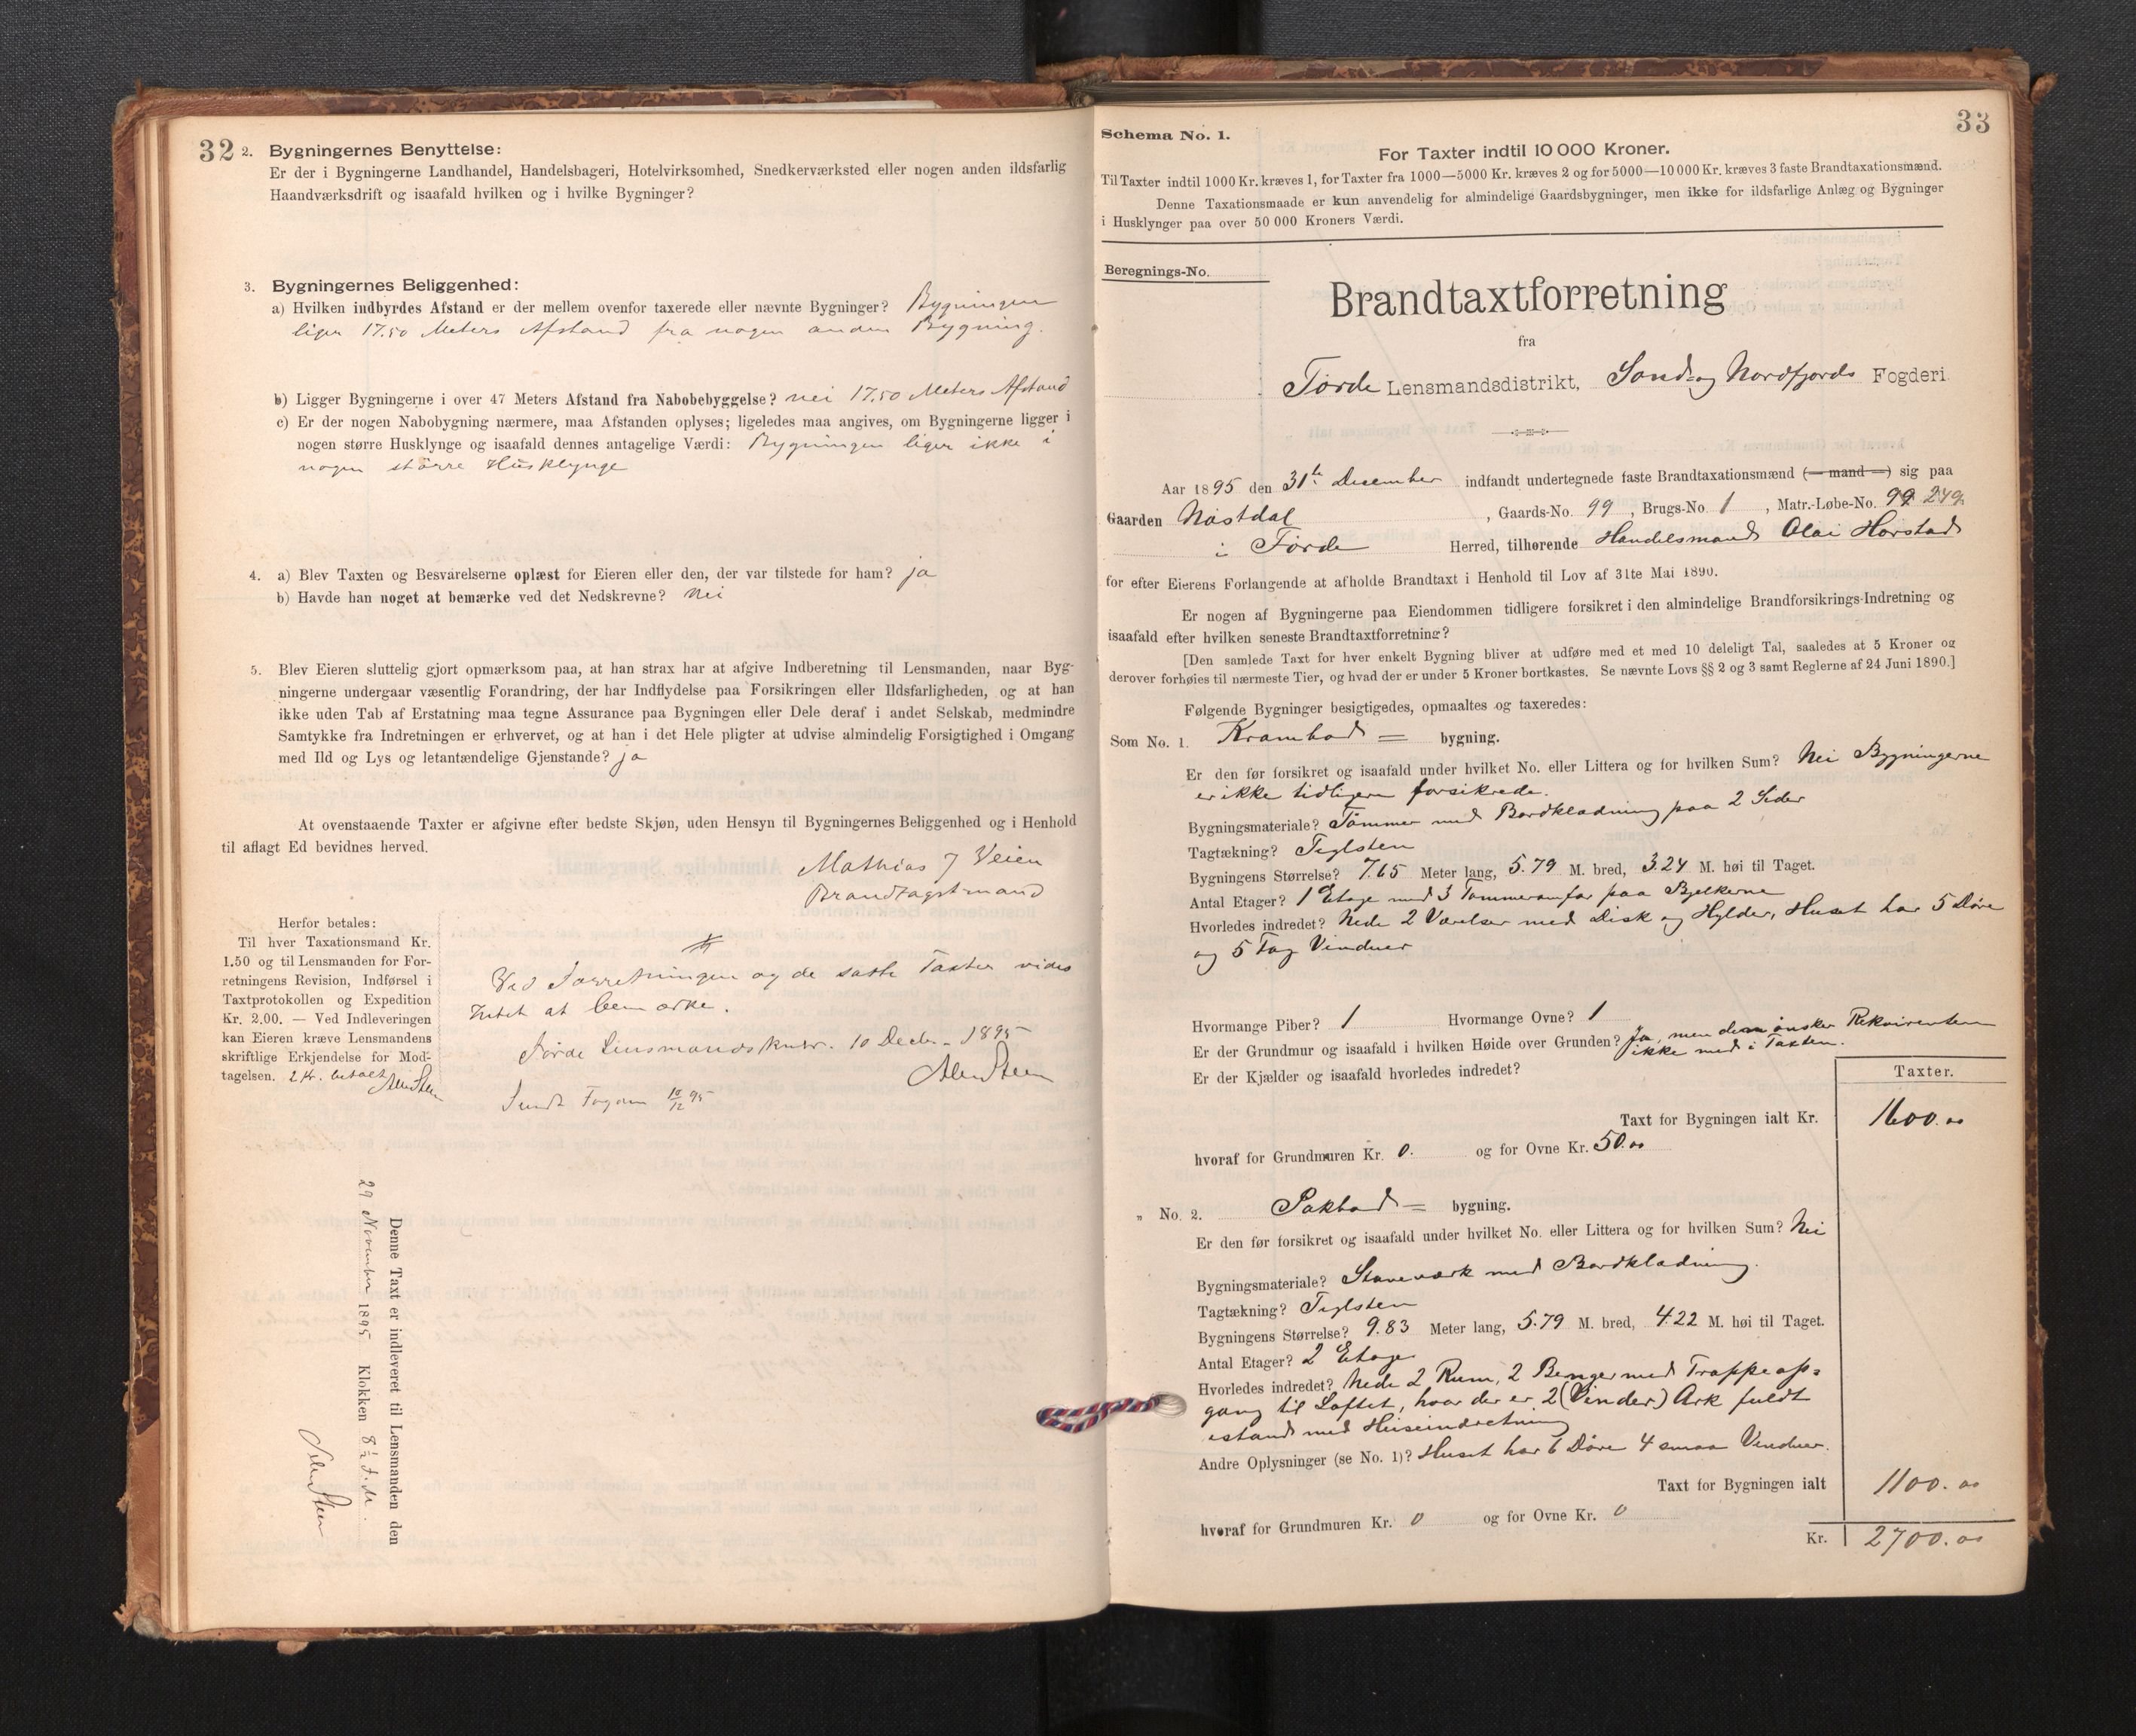 32
2. Bygningernes Benyttelse:
Er der i Bygningerne Landhandel, Handelsbageri, Hotelvirksomhed, Snedkerværksted eller nogen anden ildsfarlig
Haandværksdrift og isaafald hvilken og i hvilke Bygninger?
3. Bygningernes Beliggenhed:
a) Hvilken indbyrdes Afstand er der mellem ovenfor taxerede eller nævnte Bygninger? Bygningen
liger 17.50 Meters Afstand fra nogen anden Bygning.
b) Ligger Bygningerne i over 47 Meters Afstand fra Nabobebyggelse? nei 17.50 Meters Afstand
c) Er der nogen Nabobygning nærmere, maa Afstanden oplyses; ligeledes maa angives, om Bygningerne ligger i
nogen større Husklynge og isaafald dennes antagelige Værdi: Bygningen liger ikke i
nogen større Husklynge
4. a) Blev Taxten og Besvarelserne oplæst for Eieren eller den, der var tilstede for ham? ja
b) Havde han noget at bemærke ved det Nedskrevne? Nei
5. Blev Eieren sluttelig gjort opmærksom paa, at han strax har at afgive Indberetning til Lensmanden, naar Byg-
ningerne undergaar væsentlig Forandring, der har Indflydelse paa Forsikringen eller Ildsfarligheden, og at han
ikke uden Tab af Erstatning maa tegne Assurance paa Bygningen eller Dele deraf i andet Selskab, medmindre
Samtykke fra Indretningen er erhvervet, og at han i det Hele pligter at udvise almindelig Forsigtighed i Omgang
med Ild og Lys og letantændelige Gjenstande? ja
At ovenstaaende Taxter er afgivne efter bedste Skjøn, uden Hensyn til Bygningernes Beliggenhed og i Henhold
til aflagt Ed bevidnes herved.
Mathias J Veien
Brandtagstmand
Herfor betales:
Til hver Taxationsmand Kr.
1.50 og til Lensmanden for For-
retningens Revision, Indførsel i
Taxtprotokollen og Expedition
Kr. 2.00. — Ved Indleveringen
kan Eieren kræve Lensmandens
skriftlige Erkjendelse for Mod-
tagelsen. 2 Kr. betalt
Ved Forretningen og de satte Taxter vides
Intet at bemærke.
Førde Lensmandskntr. 10 Decbr. 1895
Sendt Fogden 10/12 95
Denne Taxt er indleveret til Lensmanden den
29 November 1895 Klokken 8 ½ f. M.
33
Schema No. 1.
For Taxter indtil 10 000 Kroner.
Til Taxter indtil 1000 Kr. kræves 1, for Taxter fra 1000—5000 Kr. kræves 2 og for 5000—10 000 Kr. kræves 3 faste Brandtaxationsmænd.
Denne Taxationsmaade er kun anvendelig for almindelige Gaardsbygninger, men ikke for ildsfarlige Anlæg og Bygninger
i Husklynger paa over 50 000 Kroners Værdi.
Beregnings-No.
Brandtaxtforretning
fra
Førde Lensmandsdistrikt, Sønd- og Nordfjords Fogderi
Aar 1895 den 31te December indfandt undertegnede faste Brandtaxationsmænd (— mand —) sig paa
Gaarden Nøstdal, Gaards-No. 99, Brugs-No. 1, Matr.-Løbe-No. 99 249
i Førde Herred, tilhørende Handelsmand Olai Horstad
for efter Eierens Forlangende at afholde Brandtaxt i Henhold til Lov af 31te Mai 1890.
Er nogen af Bygningerne paa Eiendommen tidligere forsikret i den almindelige Brandforsikrings-Indretning og
isaafald efter hvilken seneste Brandtaxtforretning?
[Den samlede Taxt for hver enkelt Bygning bliver at udføre med et med 10 deleligt Tal, saaledes at 5 Kroner og
derover forhøies til nærmeste Tier, og hvad der er under 5 Kroner bortkastes. Se nævnte Lovs §§ 2 og 3 samt Reglerne af 24 Juni 1890.]
Følgende Bygninger besigtigedes, opmaaltes og taxeredes:
Som No. 1. Krambod = bygning.
Er den før forsikret og isaafald under hvilket No. eller Littera og for hvilken Sum? Nei Bygningerne
er ikke tidligere forsikrede.
Bygningsmateriale? Tømmer med Bordklædning paa 2 Sider
Tagtækning? Teglsten
Bygningens Størrelse? 7.65 Meter lang, 5.79 M. bred, 3.24 M. høi til Taget.
Antal Etager? 1 Etage med 3 Tømmeromfar paa Bjelkerne
Hvorledes indredet? Nede 2 Værelser med Disk og Hylder, Huset har 5 Døre
og 5 Fag Vinduer
Hvormange Piber? 1 Hvormange Ovne? 1
Er der Grundmur og isaafald i hvilken Høide over Grunden? Ja, men den ønsker Rekvirenten
ikke med i Taxten.
Er der Kjælder og isaafald hvorledes indredet?
Taxter.
Taxt for Bygningen ialt Kr. 1600.00
hvoraf for Grundmuren Kr. 0. og for Ovne Kr. 50.00
„ No. 2. Pakbod = bygning.
Er den før forsikret og isaafald under hvilket No. eller Littera og for hvilken Sum? Nei
Bygningsmateriale? Staveværk med Bordklædning.
Tagtækning? Teglsten
Bygningens Størrelse? 9.83 Meter lang, 5.79 M. bred, 4.22 M. høi til Taget.
Antal Etager? 2 Etage
Hvorledes indredet? Nede 2 Rum, 2 Benger med Trappeop=
gang til Loftet, hvor der er 2 (Vinder) Ark fuldt
istand med Heiseindretning
Andre Oplysninger (se No. 1)? Huset har 6 Døre 4 smaa Vinduer.
Taxt for Bygningen ialt 1100.00
hvoraf for Grundmuren Kr. 0 og for Ovne Kr. 0
Kr. 2700.00